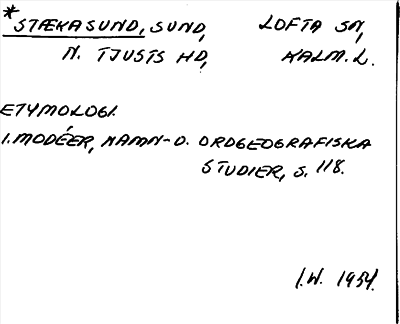 *STÆKASUND, SUND, LOFTA SN,
N. TJUSTS HD, KALM. L.
ETYMOLOGI.
I. MODÉER, NAMN- O. ORDGEOGRAFISKA
STUDIER, S. 118.
I.W. 1954.